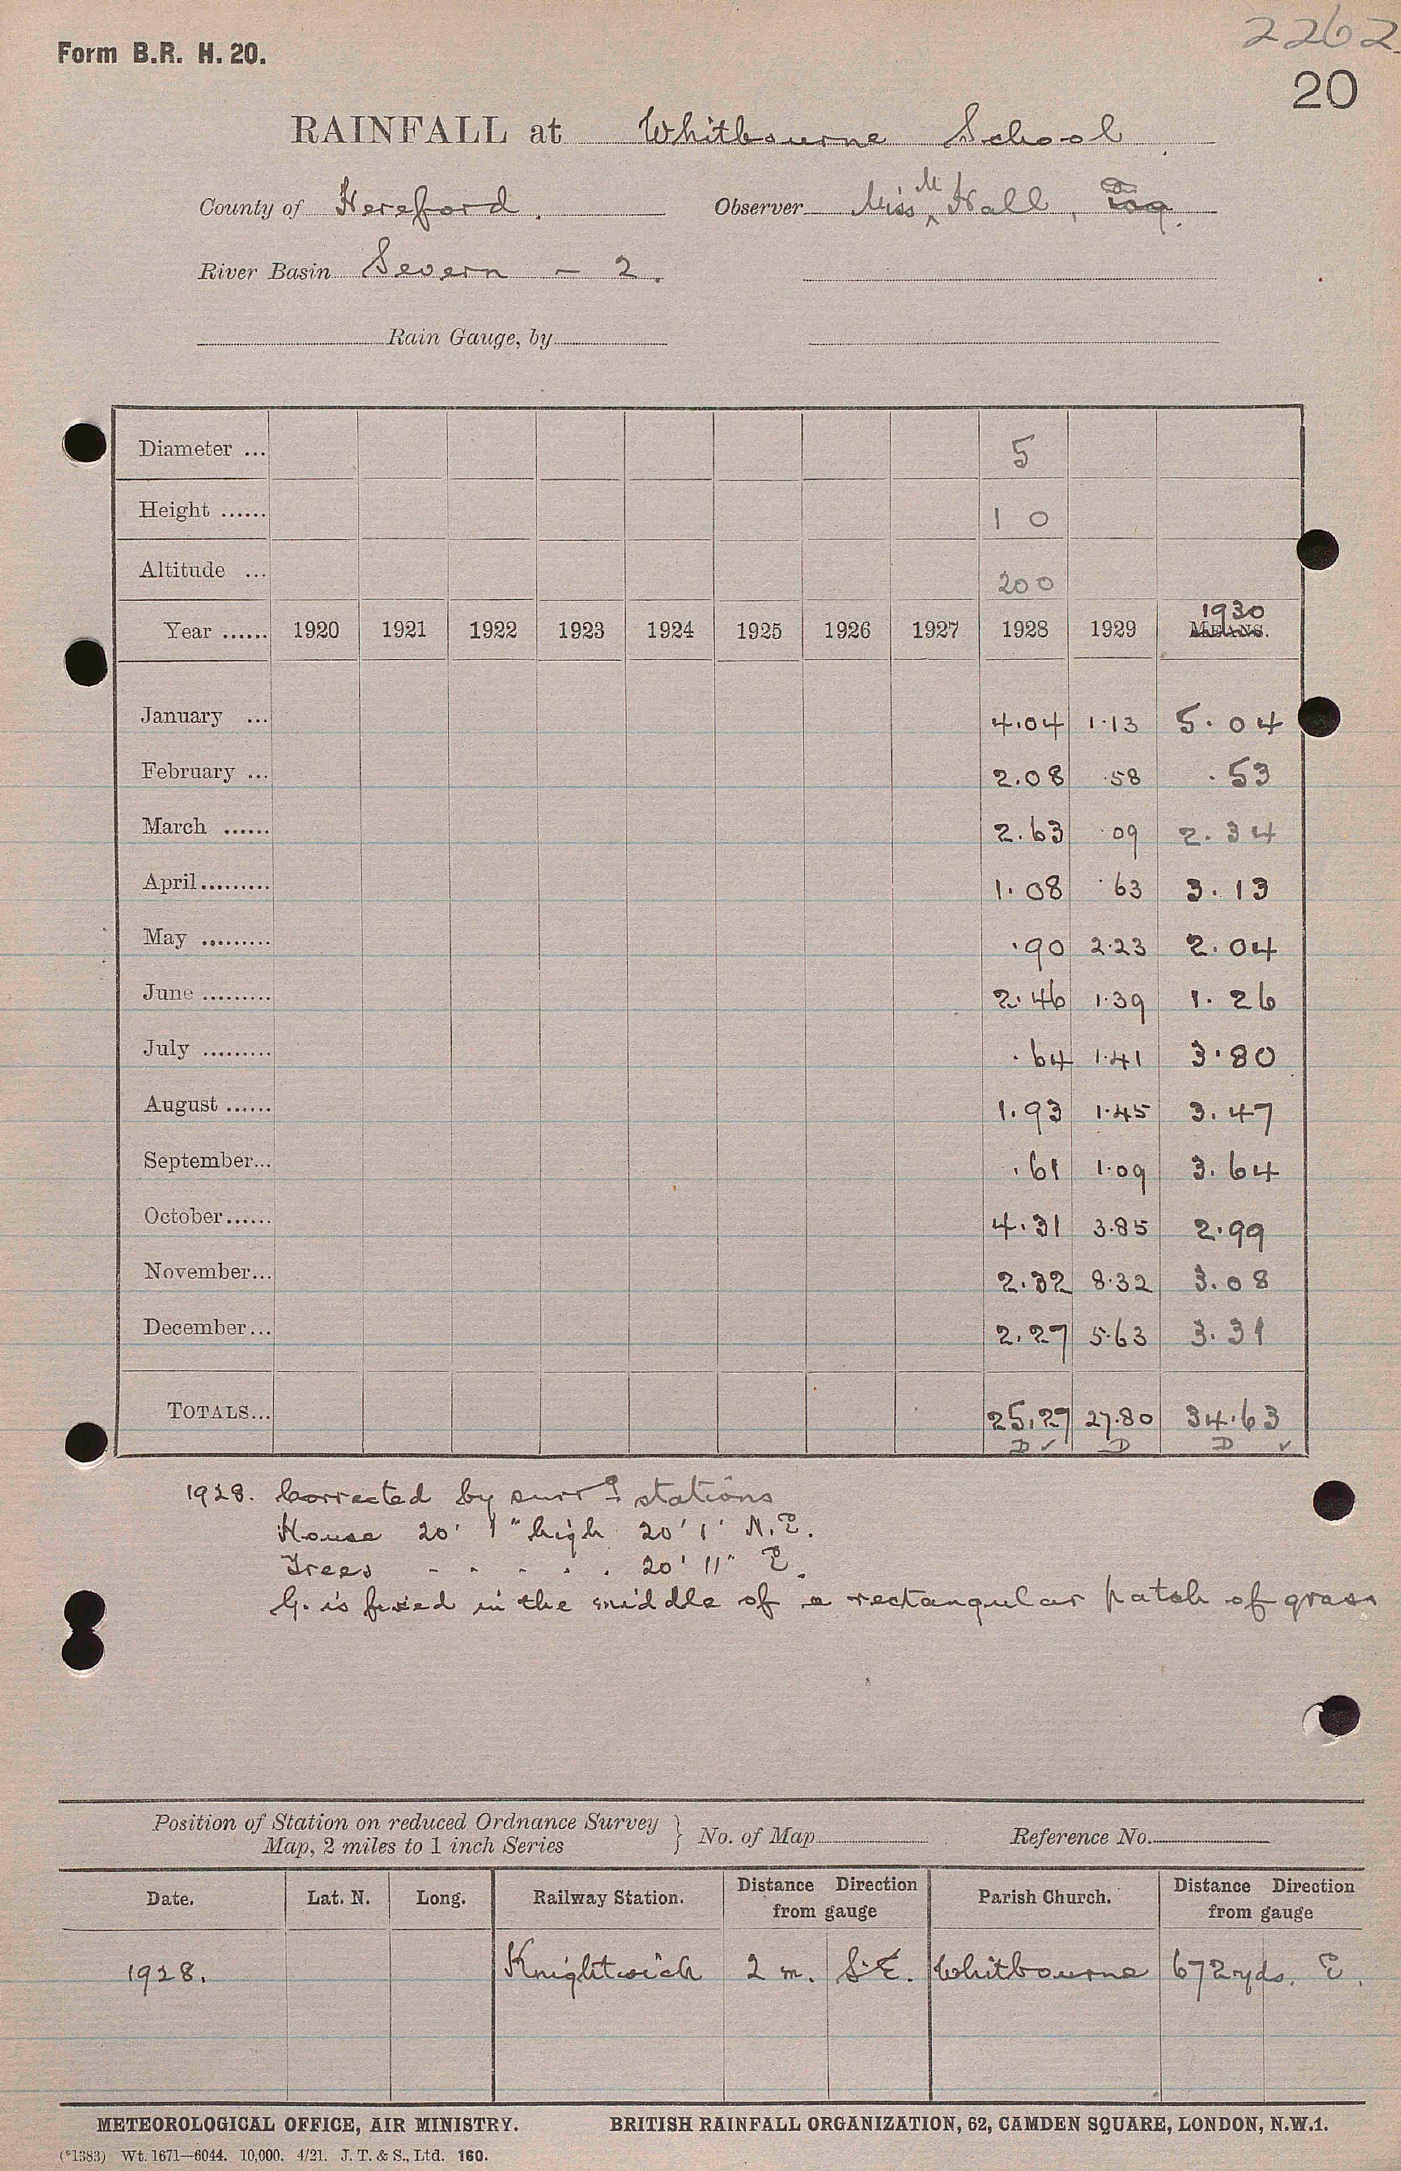 2262
Form B.R. H. 20.
20
RAINFALL at Whitbourne School
County of Hereford. Observer Miss M Hall,
River Basin Severn - 2.
Rain Gauge, by
Diameter ... 5
Height ...... 1 0
Altitude ... 200
Year ...... 1920 1921 1922 1923 1924 1925 1926 1927 1928 1929 1930 MEANS.
January ... 4.04 1.13 5.04
February ... 2.08 .58 .53
March ...... 2.63 .09 2.34
April......... 1.08 .63 3.13
May ......... .90 2.23 2.04
June ......... 2.46 1.39 1.26
July ......... .64 1.41 3.80
August ...... 1.93 1.45 3.47
September... .61 1.09 3.64
October...... 4.31 3.85 2.99
November... 2.32 8.32 3.08
December... 2.27 5.63 3.31
TOTALS... 25.27 27.80 34.63
D ✓ D D ✓
1928. Corrected by surrg stations
House 20' 1" high 20' 1' N.E.
Trees - - - . . 20' 11" E.
G. is fixed in the middle of a rectangular patch of grass
Position of Station on reduced Ordnance Survey
Map, 2 miles to 1 inch Series } No. of Map Reference No.
Date. Lat. N. Long. Railway Station. Distance Direction from gauge Parish Church. Distance Direction from gauge
1928. Knightwich 2 m. S.E. Whitbourne 672 yds. E.
METEOROLOGICAL OFFICE, AIR MINISTRY. BRITISH RAINFALL ORGANIZATION, 62, CAMDEN SQUARE, LONDON, N.W.1.
(*1383) Wt. 1671—6044. 10,000. 4/21. J. T. & S., Ltd. 160.